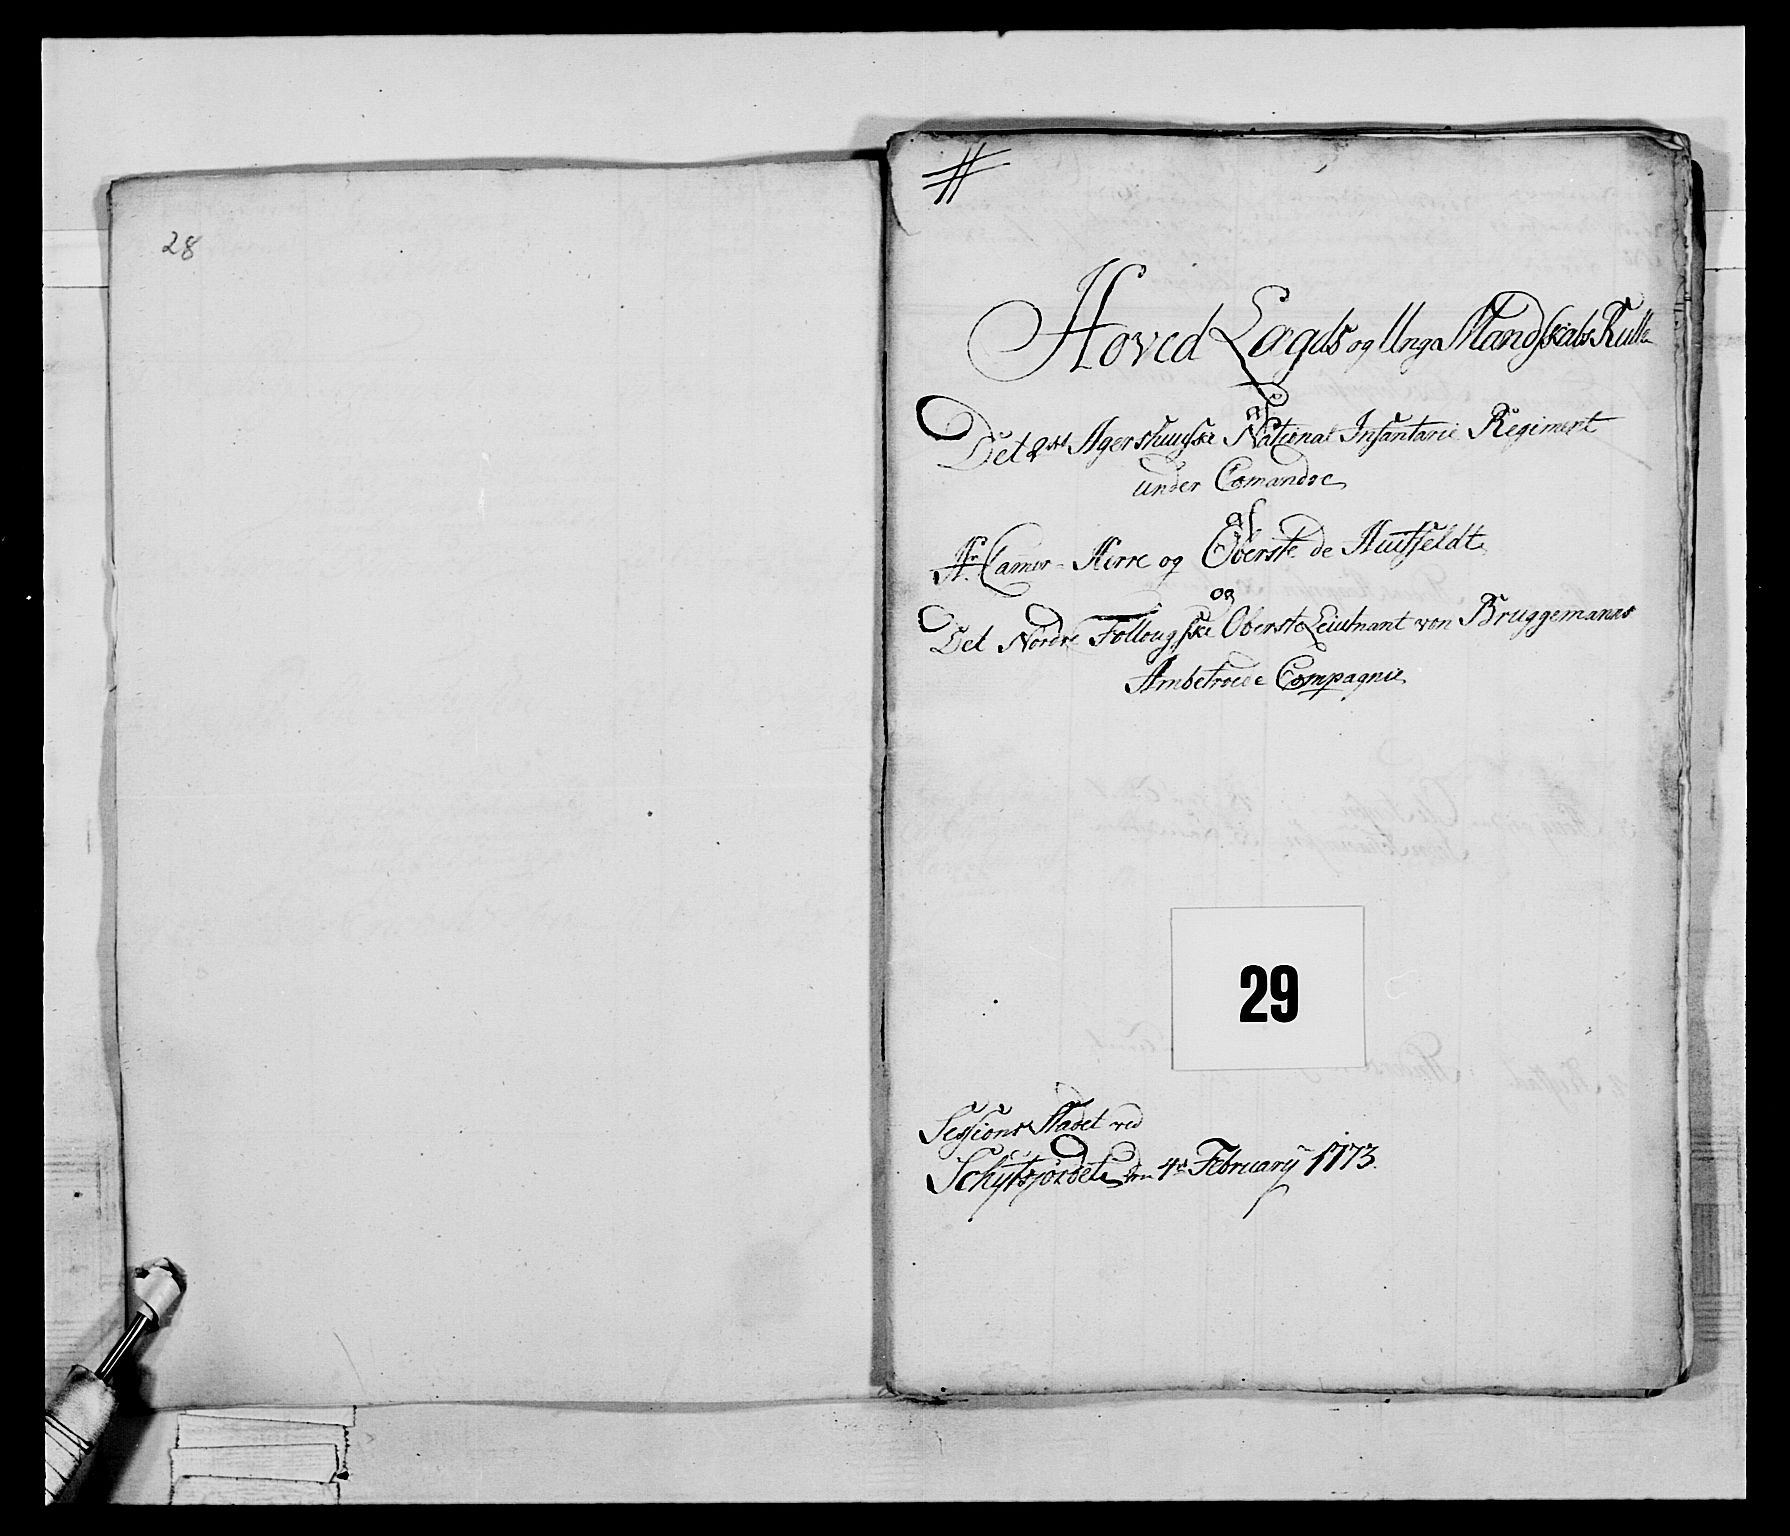 28
#
Hoved Lægds og Unga Mandskabs Rulle
af
Det 2det Agershuusske National Infanterie Regiment
under Comandoe
af
Hr. Camer-Herre og Oberste de Huitfeldt
og
Det Nordre Follougske Oberste Leiutnant von Bruggemanns
Ambetroede Compagnie
29
Sessions Stadet ved
Schytsjordet den 4de February 1773.